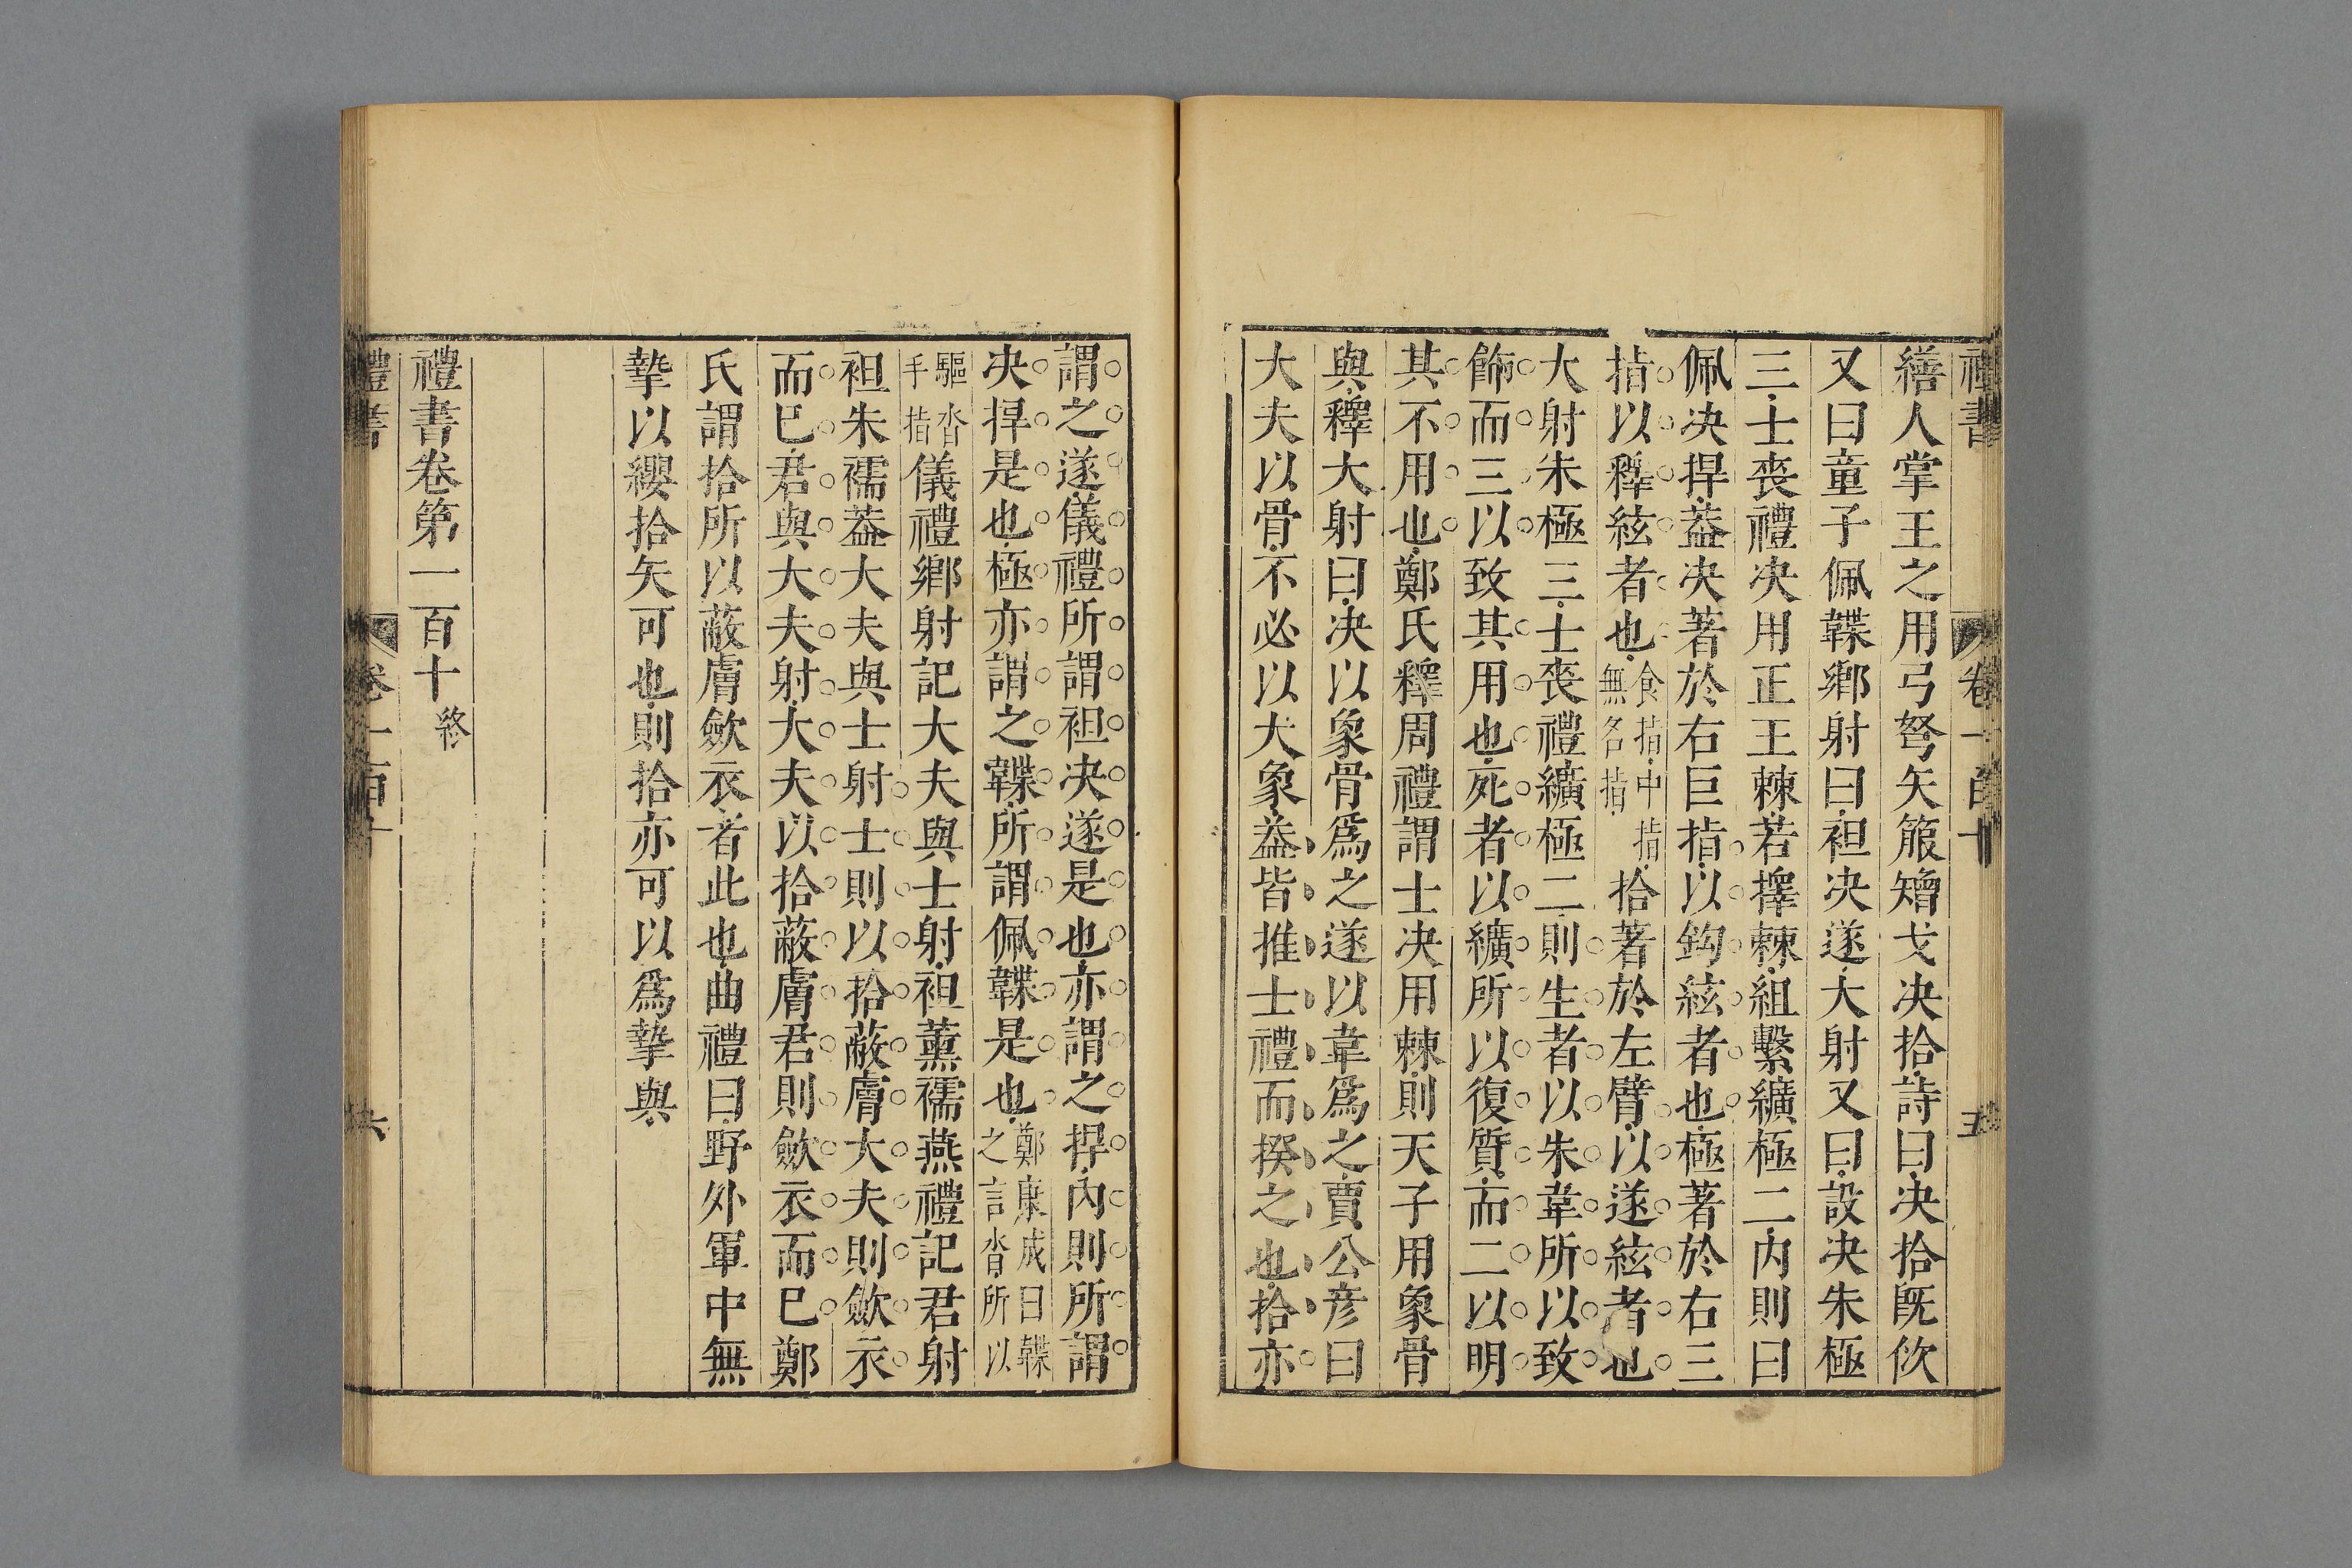 禮書 卷一百十 五
繕人掌王之用弓弩矢箙矰弋決拾詩曰決拾旣佽
又曰童子佩韘鄉射曰袒決遂大射又曰設決朱極
三士喪禮決用正王棘若擇棘組繫纊極二內則曰
佩決捍葢決著於右巨指以鈎絃者也極著於右三
指以釋絃者也食指中指無名指拾著於左臂以遂絃者也
大射朱極三士喪禮纊極二則生者以朱韋所以致
飾而三以致其用也死者以纊所以復質而二以明
其不用也鄭氏釋周禮謂士決用棘則天子用象骨
與釋大射曰決以象骨爲之遂以韋爲之賈公彥曰
大夫以骨不必以犬象葢皆推士禮而揆之也拾亦
謂之遂儀禮所謂袒決遂是也亦謂之捍內則所謂
決捍是也極亦謂之韘所謂佩韘是也鄭康成曰韘之言沓所以
驅沓手指儀禮鄉射記大夫與士射袒薰襦燕禮記君射
袒朱襦葢大夫與士射士則以拾蔽膚大夫則斂衣
而已君與大夫射大夫以拾蔽膚君則斂衣而已鄭
氏謂拾所以蔽膚斂衣者此也曲禮曰野外軍中無
摯以纓拾矢可也則拾亦可以爲摯與
禮書卷第一百十終
禮書 卷一百十 六